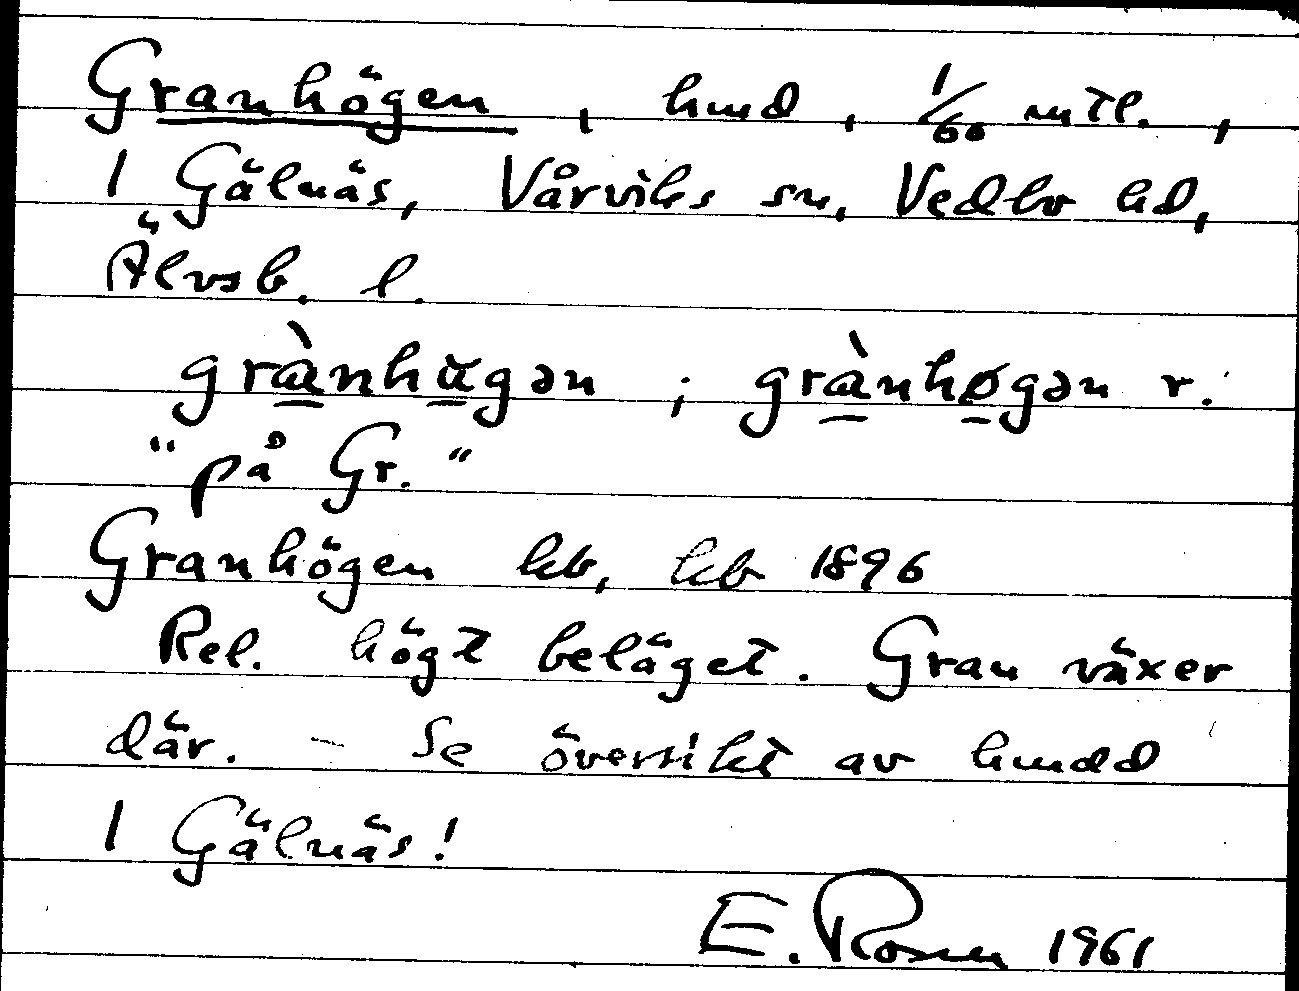 Granhögen, hmd, 1/60 mtl.,
1 Gälnäs, Vårviks sn, Vedbo hd,
Älvsb. l.
grànhəgən ; grànhøgən r.
"på Gr."
Granhögen kb, kb 1896
Rel. högt beläget. Gran växer
där. – Se översikt av hmdd
1 Gälnäs!
E. Rosen 1961